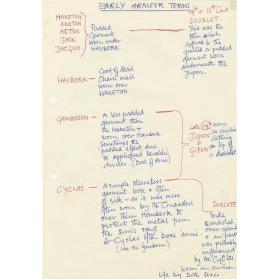 EARLY ARMOUR TERMS
HAKETON
AKETON
ACTON
JACK
JACQUE
Padded
Garment
worn under
HAUBERK
14th & 15th Cent
DOUBLET
This was the
term which
referred to the
quilted or padded
garment worn
underneath the
Jupon.
HAUBERK
Coat of Mail
Chain mail
worn over
HAKETON
GAMBESON
A less padded
garment than
the Haketon –
worn over Hauberk
Sometimes the
padded effect due
to appliquéd heraldic
devices (Coat of Arms)
Late 14th
JUPON
or
GIPON
worn as
civilian
clothing
on top of
a doublet
CYCLAS
A simple sleeveless
garment work often
of silk – as it was more
often worn by the Crusaders
over their Hauberk to
protect the metal from
the sun's rays
A Cyclas often bore arms
(like the Gambeson)
SURCOTE
was probably
influenced
by the CYCLAS
worn in civilian
life by both sexes